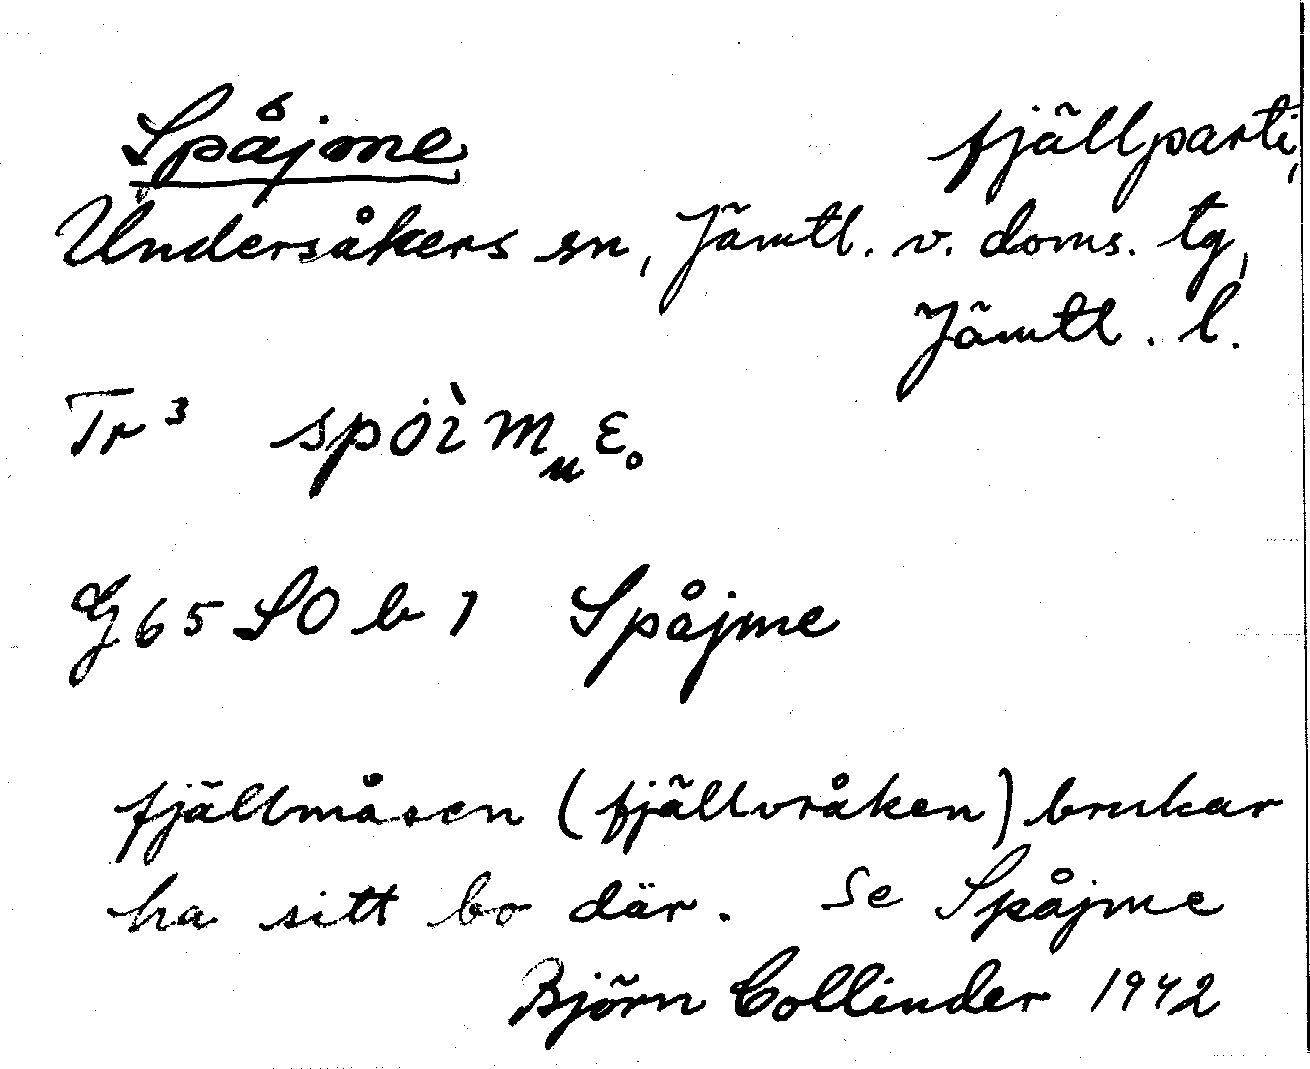 Spåjme fjällparti,
Undersåkers sn, Jämtl. v. doms. tg,
Jämtl. l.
Tr³ spȯìmᵤε˳
G 65 SO b 1 Spåjme
fjällmåsen (fjällvråken) brukar
ha sitt bo där. Se Spåjme
Björn Collinder 1942